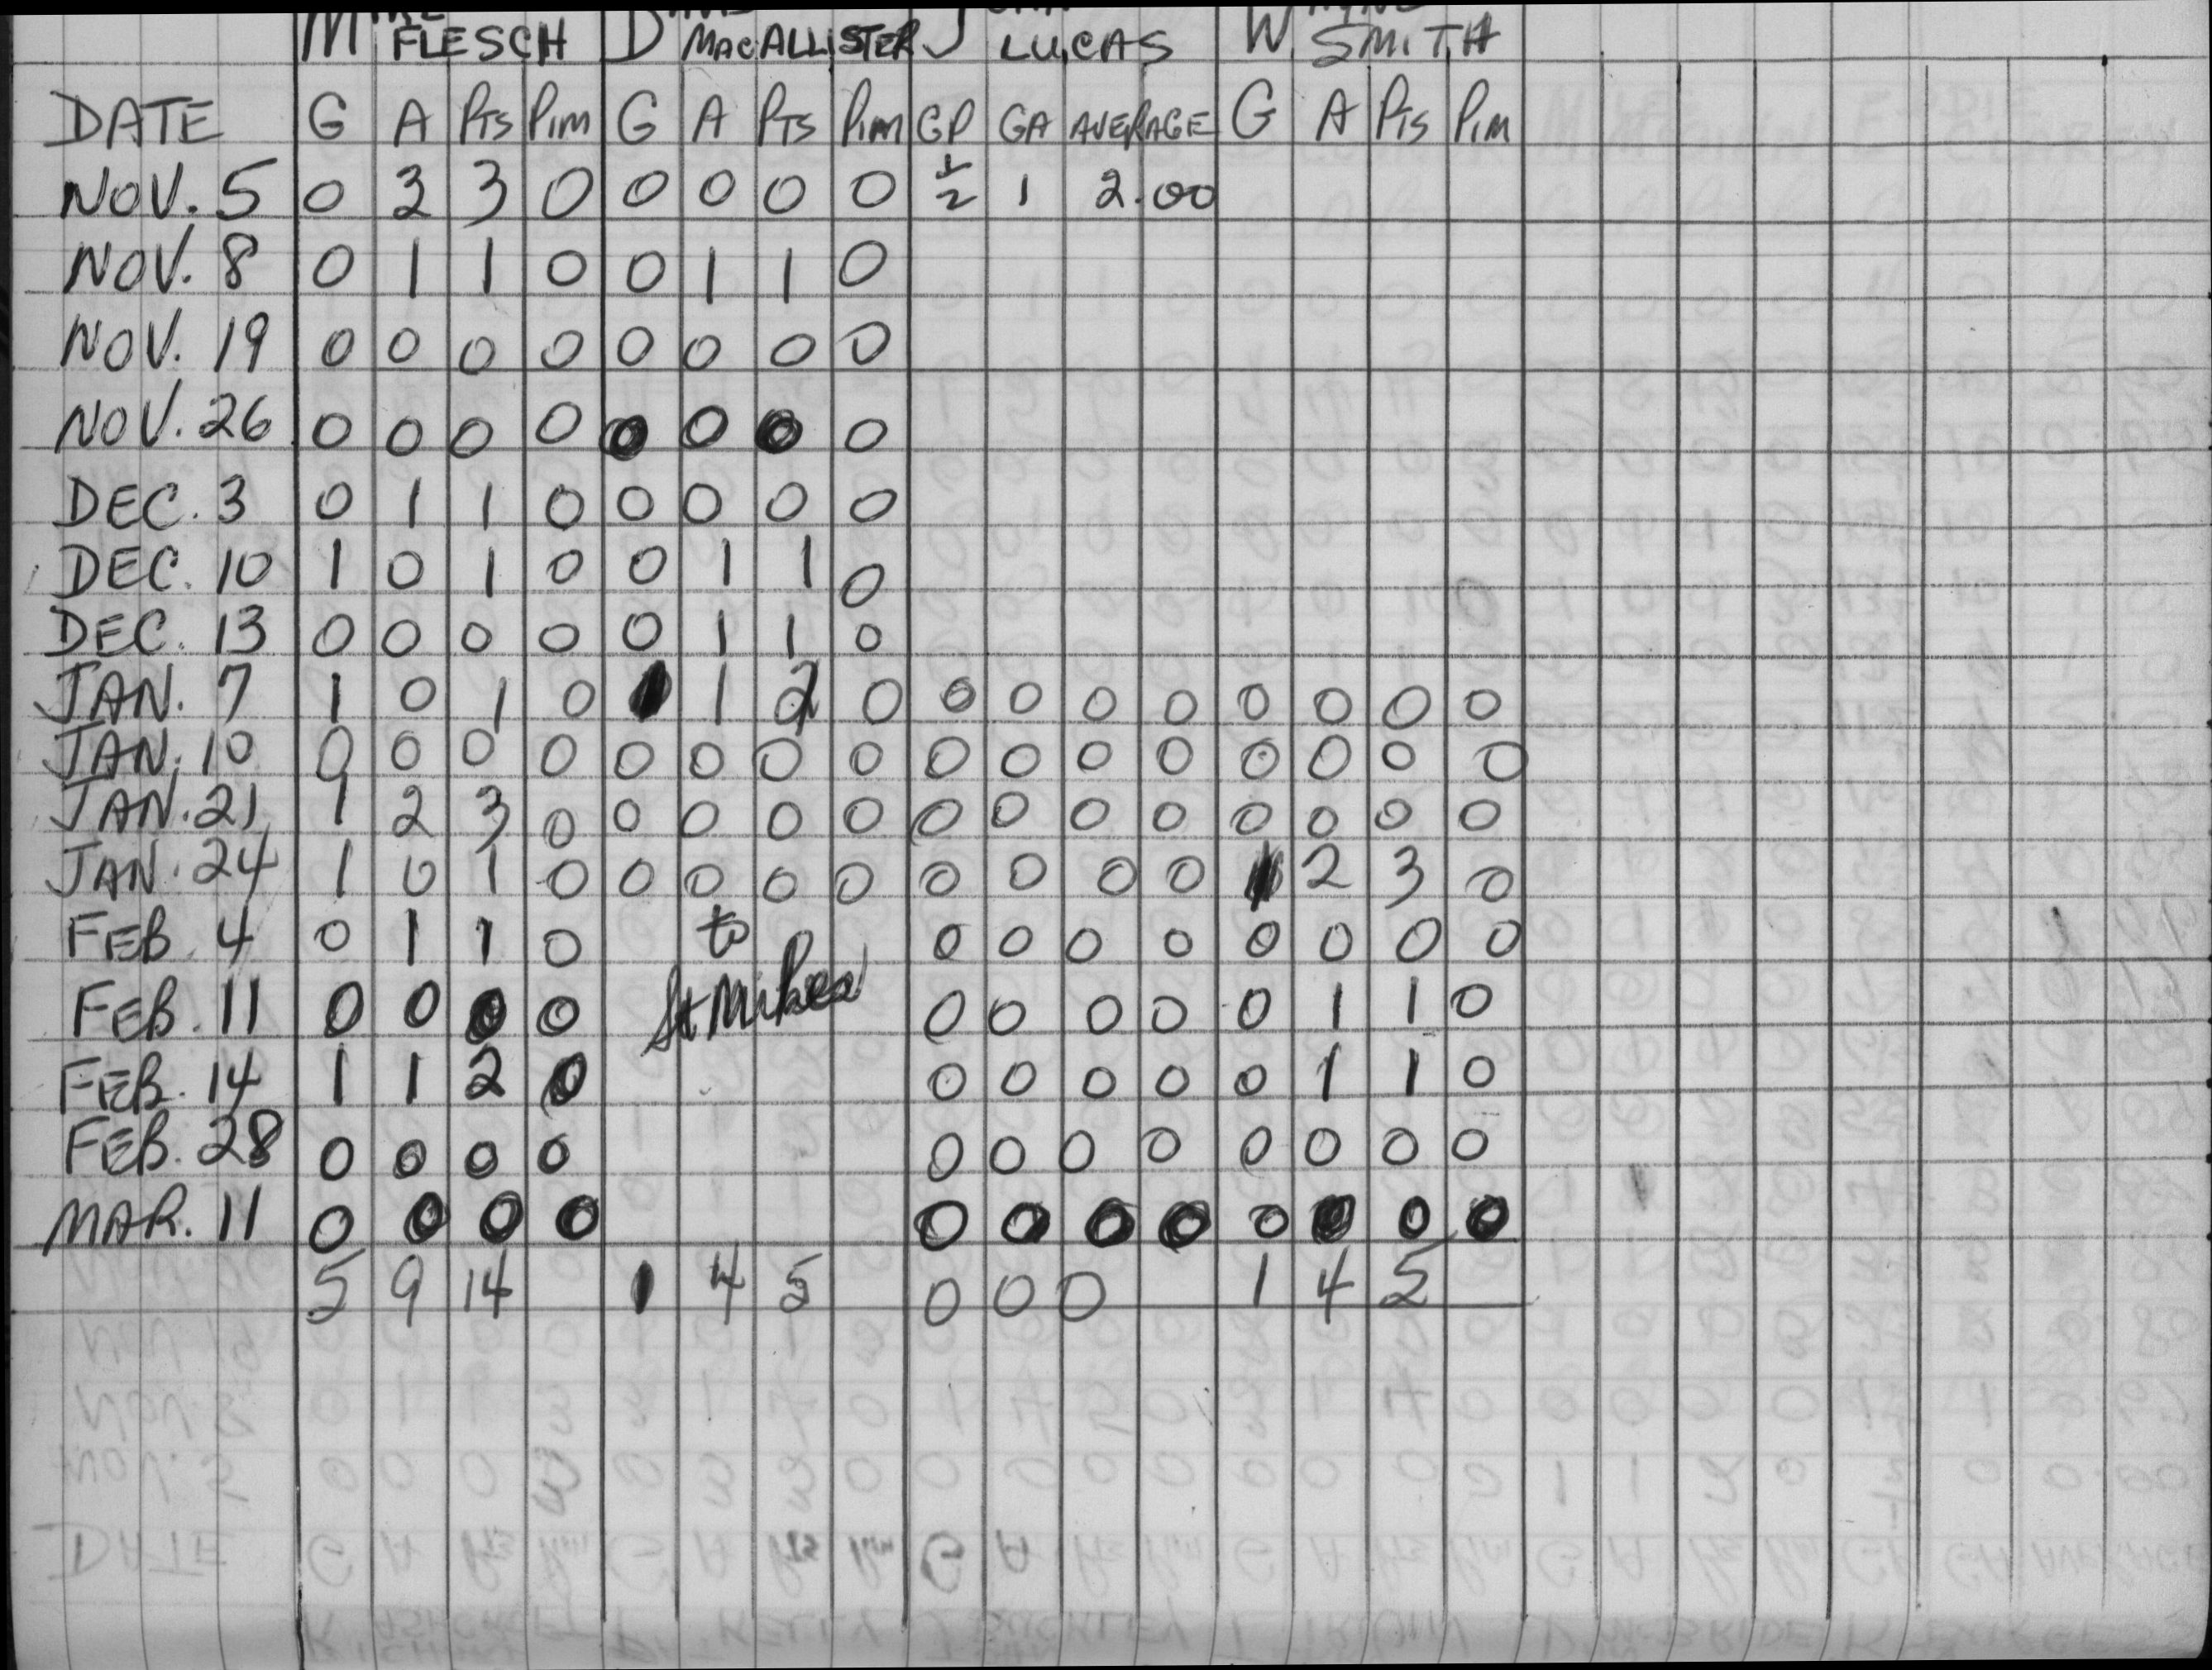 FLESCH MACALLISTER LUCAS W. SMITH
DATE G A PTS PIM G A PTS PIM GP GA AVERAGE G A PTS PIM
NOV. 5 0 3 3 0 0 0 0 0 ½ 1 2.00
NOV. 8 0 1 1 0 0 1 1 0
NOV. 19 0 0 0 0 0 0 0 0
NOV. 26 0 0 0 0 0 0 0 0
DEC. 3 0 1 1 0 0 0 0 0
DEC. 10 1 0 1 0 0 1 1 0
DEC. 13 0 0 0 0 0 1 1 0
JAN. 7 1 0 1 0 1 1 2 0 0 0 0 0 0 0 0 0
JAN. 10 0 0 0 0 0 0 0 0 0 0 0 0 0 0 0 0
JAN. 21 1 2 3 0 0 0 0 0 0 0 0 0 0 0 0 0
JAN. 24 1 0 1 0 0 0 0 0 0 0 0 0 1 2 3 0
FEB. 4 0 1 1 0 to 0 0 0 0 0 0 0 0
FEB. 11 0 0 0 0 St Mikes 0 0 0 0 0 1 1 0
FEB. 14 1 1 2 0 0 0 0 0 0 1 1 0
FEB. 28 0 0 0 0 0 0 0 0 0 0 0 0
MAR. 11 0 0 0 0 0 0 0 0 0 0 0 0
5 9 14 1 4 5 0 0 0 1 4 5